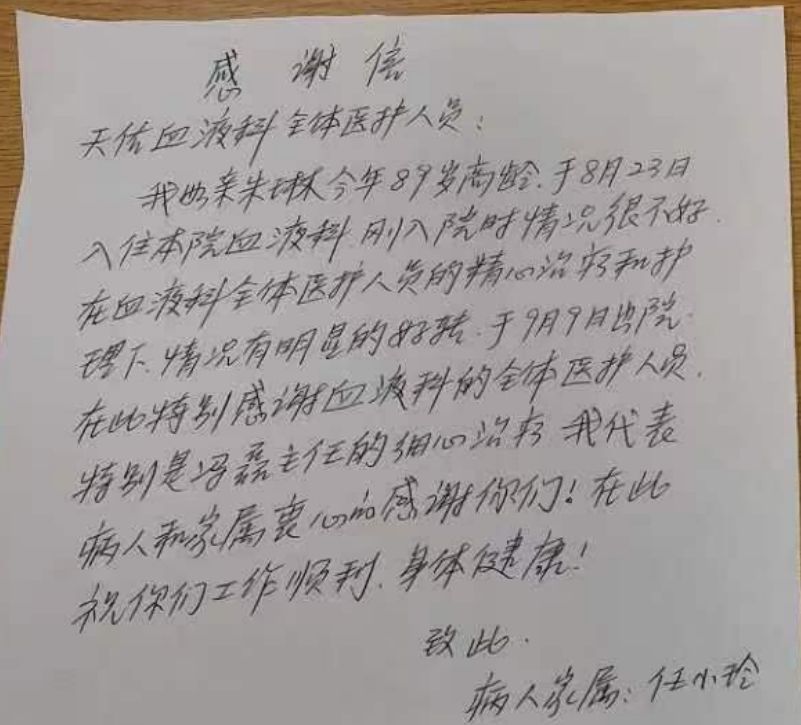 感谢信
天佑血液科全体医护人员:
我母亲朱琳今年89岁高龄.于8月23日
入住本院血液科.刚入院时情况很不好.
在血液科全体医护人员的精心治疗和护
理下.情况有明显的好转.于9月9日出院.
在此特别感谢血液科的全体医护人员.
特别是冯磊主任的细心治疗.我代表
病人和家属衷心的感谢你们!在此
祝你们工作顺利.身体健康!
致此.
病人家属:任小玲